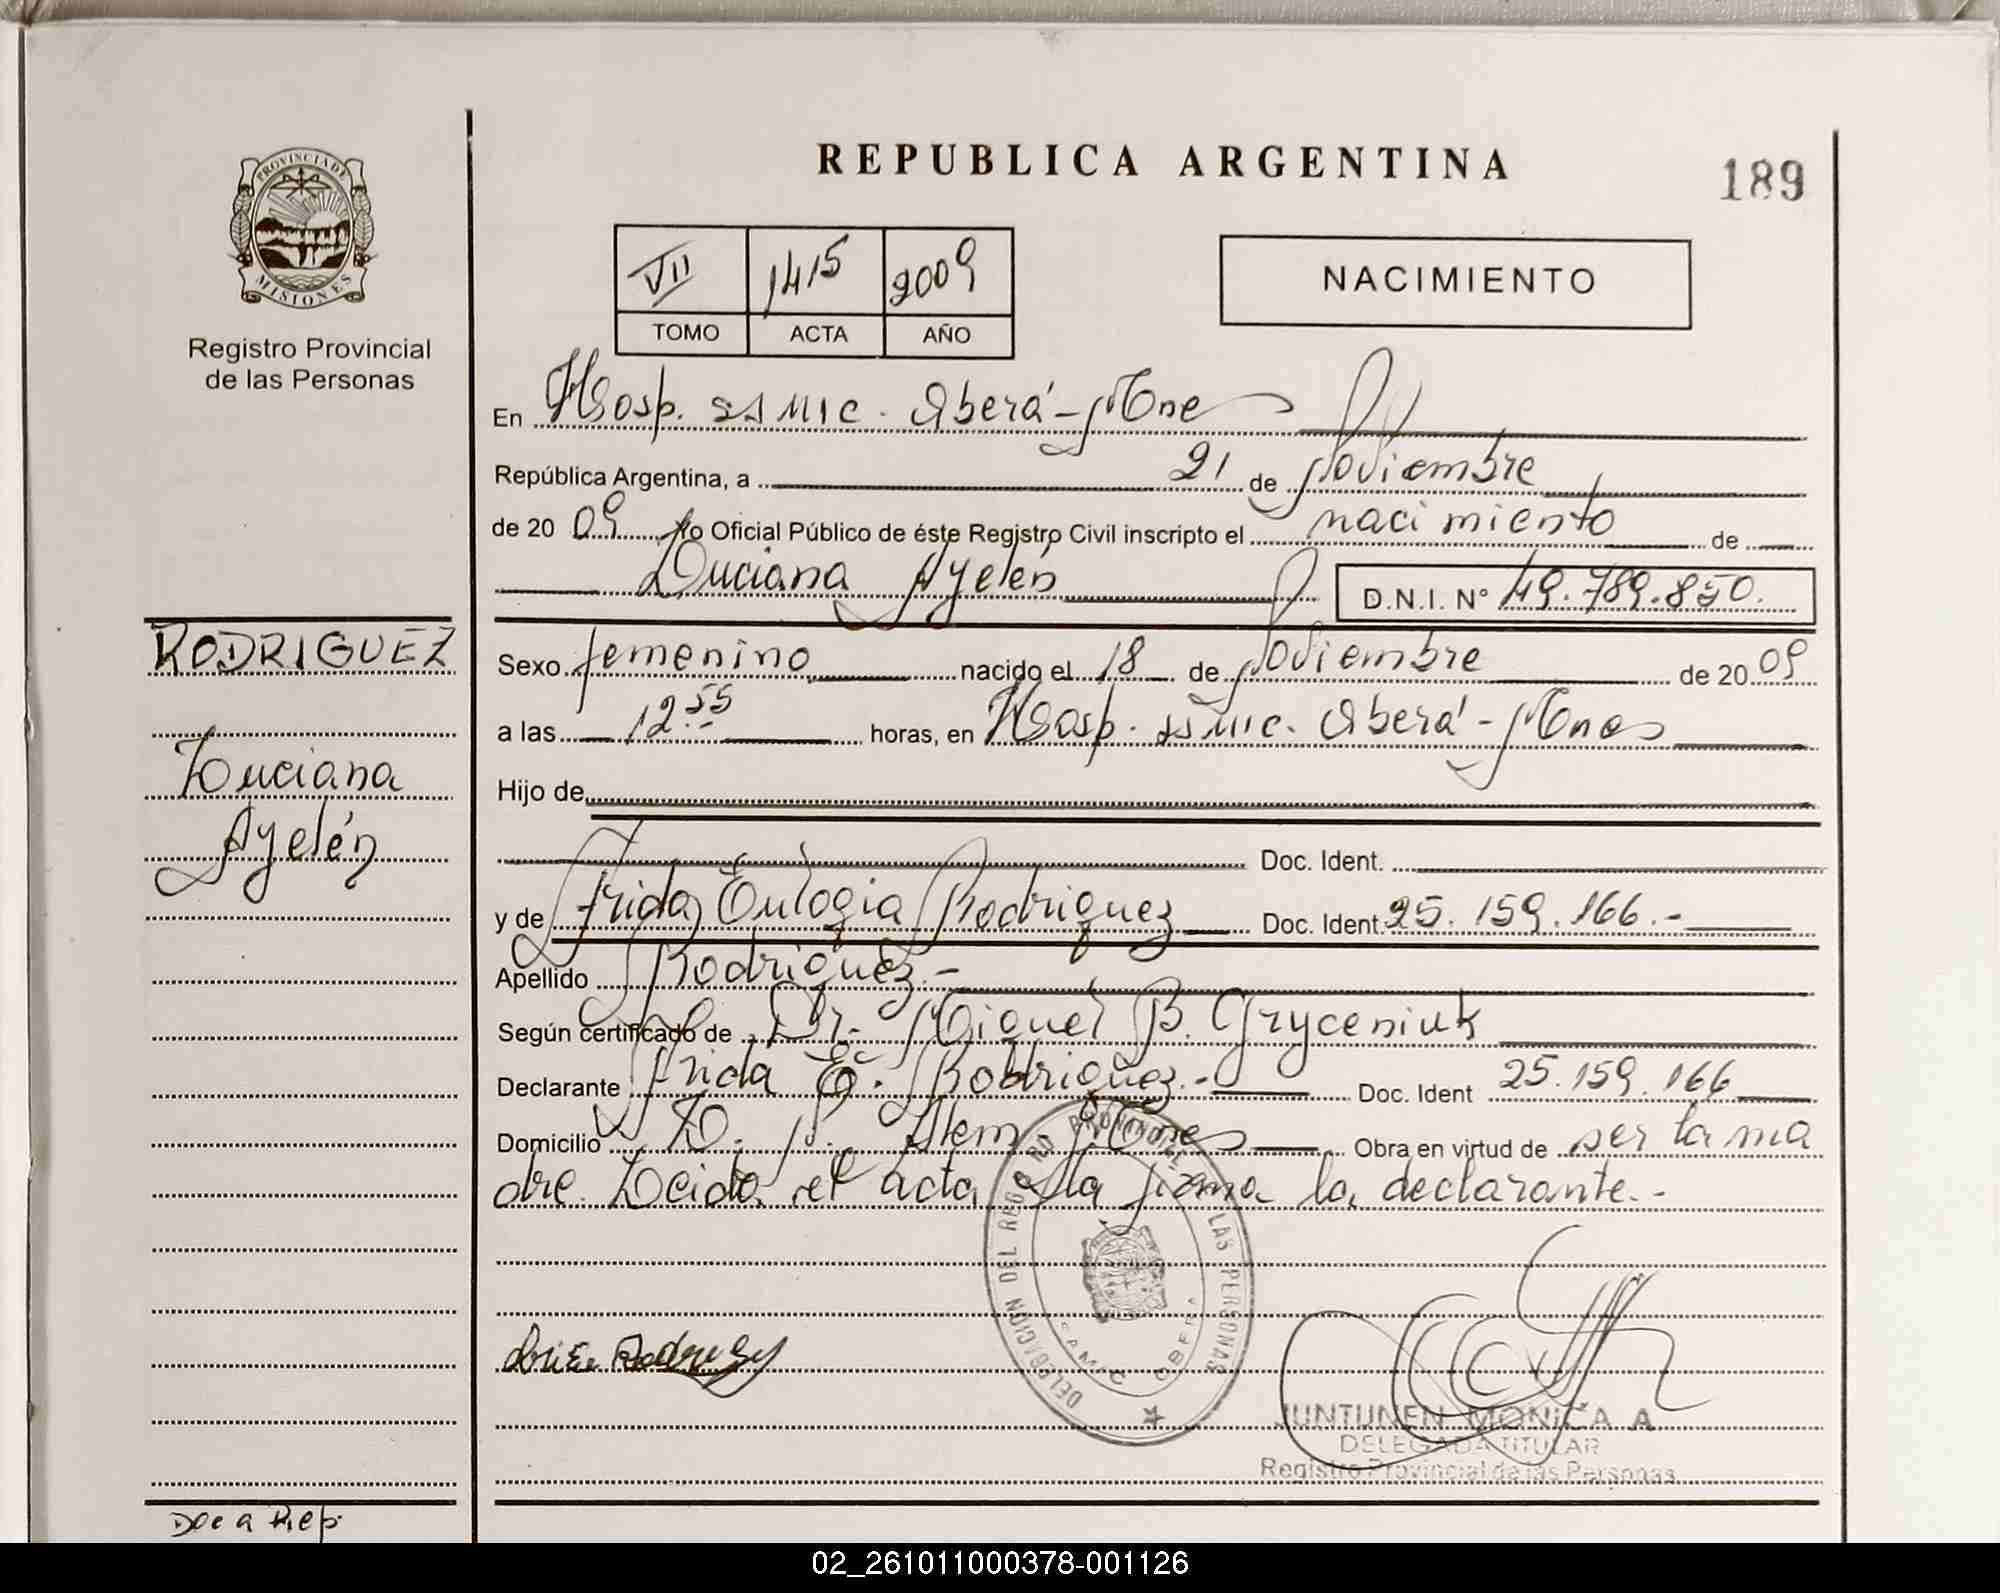 REPUBLICA ARGENTINA
189
PROVINCIA DE
MISIONES
Registro Provincial
de las Personas
VII 1415 2009
TOMO ACTA AÑO
NACIMIENTO
En Hosp. SAMIC. Oberá - Mnes
República Argentina, a 21 de Noviembre
de 20 09 Yo Oficial Público de éste Registro Civil inscripto el nacimiento de
Luciana Ayelén D.N.I. N° 49.789.850.
RODRIGUEZ
Luciana
Ayelén
Sexo femenino nacido el 18 de Noviembre de 20 09
a las 12.55 horas, en Hosp. SAMIC. Oberá - Mnes
Hijo de
Doc. Ident.
y de Frida Eulogia Rodriguez Doc. Ident 25.159.166.-
Apellido Rodriguez.-
Según certificado de Dr. Miguel B. Gryceniuk
Declarante Frida E. Rodriguez.- Doc. Ident 25.159.166
Domicilio L. N. Alem Mnes Obra en virtud de ser la ma
dre. Leida el acta la firma la declarante.-
DELEGACION DEL REGISTRO PROVINCIAL DE LAS PERSONAS
SAMIC OBERA
Rodriguez
JUNTUNEN MONICA A
DELEGADA TITULAR
Registro Provincial de las Personas
02_261011000378-001126